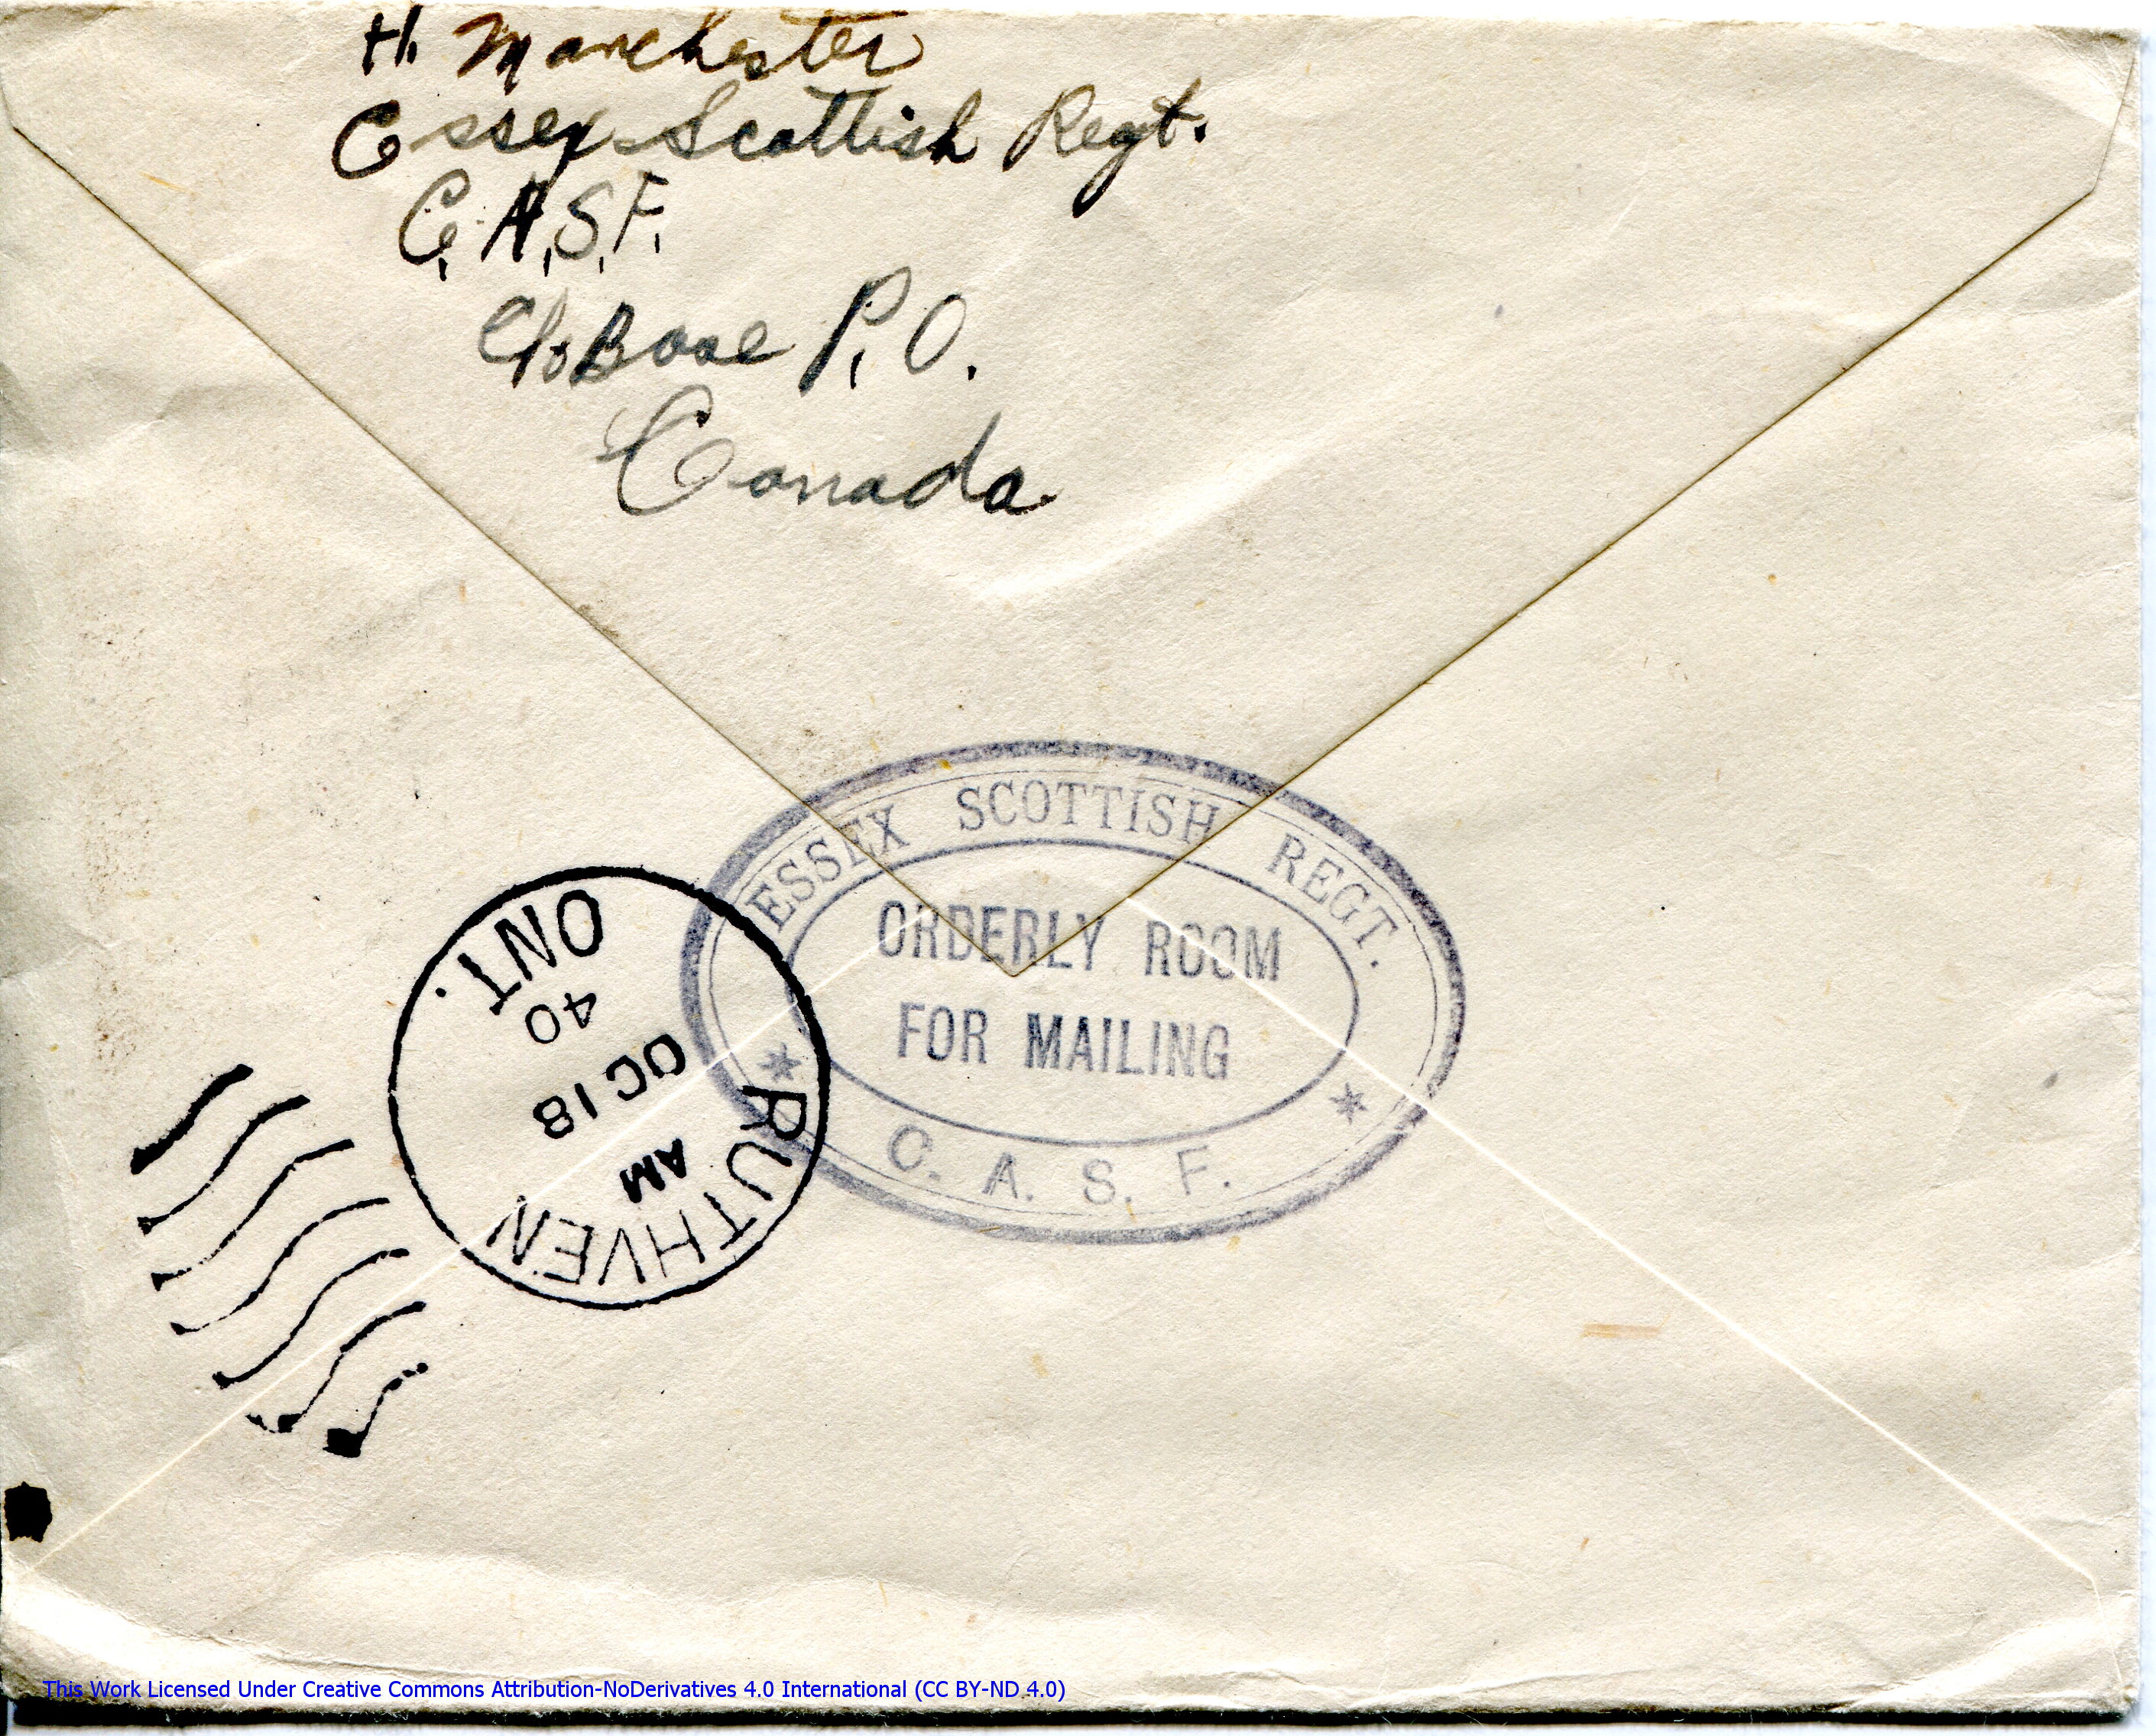 H. Manchester
Essex Scottish Regt.
C.A.S.F.
C/o Base P.O.
Canada
ESSEX SCOTTISH REGT.
ORDERLY ROOM
FOR MAILING
C. A. S. F.
RUTHVEN
AM
OC 18
40
ONT.
This Work Licensed Under Creative Commons Attribution-NoDerivatives 4.0 International (CC BY-ND 4.0)